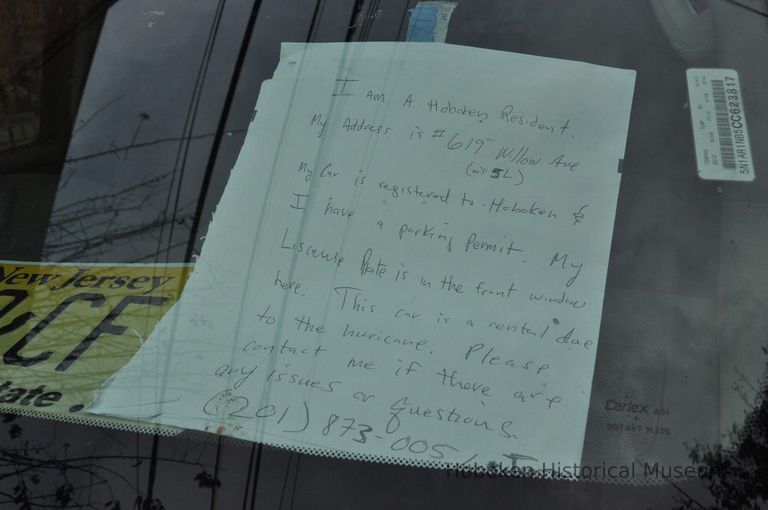 I am A Hoboken Resident.
My Address is # 619 Willow Ave
5L)
My Car is registered to Hoboken &
I have a parking permit. My
Liscense Plate is in the front window
here. This car is a rental due
to the hurricane. Please
contact me if there are
any issues or questions.
(201) 873-005
New Jersey
CF
tate
5N1AR1NB5CC623817
Carlex AS1
Hoboken Historical Museu